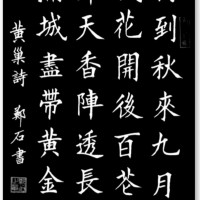 到秋來九月
花開後百花
天香陣透長
滿城盡帶黃金
黃巢詩 鄭石書